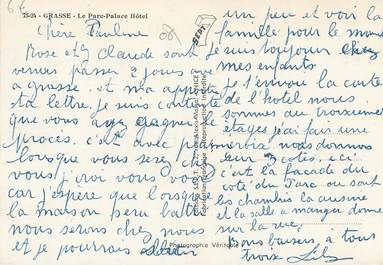 75-25 - GRASSE - Le Parc-Palace Hôtel
Chère Pauline
Rose et Claude sont
venus passer 2 jours
a grasse et m'a apporté
ta lettre. je suis contente
que vous aye gagner le
procès. c'est avec
lorsque vous serez chez
vous j'irai vous voir
car j'espère que lorsque
la maison sera
nous serons chez nous
et je pourrais
un peu et voir la
famille pour le moment
je suis toujour chez
mes enfants.
je t'envoi la carte
de l'hotel nous
sommes au troisieme
etages j'ai fait une
nous donnons
sur 3 cotés, ici
c'est la façade du
coté du Parc ou sont
les chambres la cuisine
et la salle a manger donne
sur la rue.
Bons baisers a tous
trois
Photographie Véritable